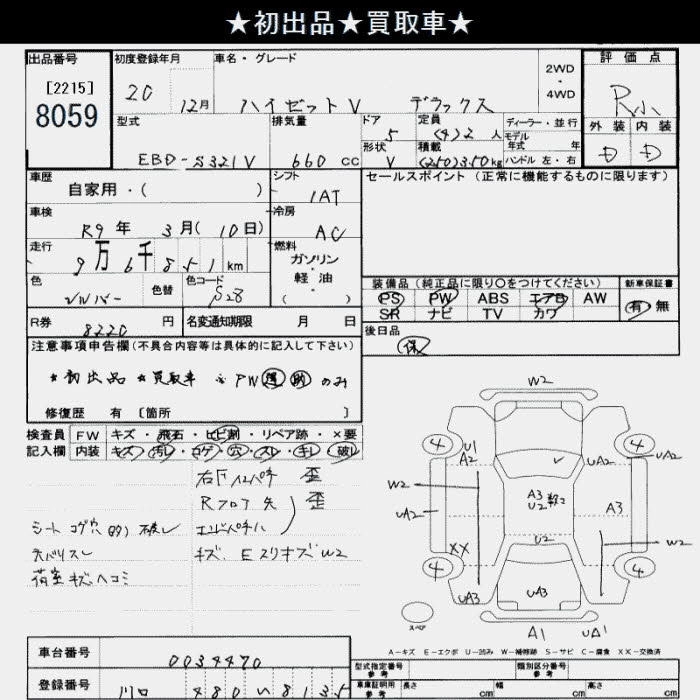 ★初出品★買取車★
出品番号 初度登録年月 車名・グレード 評価点
[2215] 20 12月 ハイゼットV デラックス 2WD・4WD R小
8059
型式 排気量 ドア 5 定員 (4)2人 ディーラー・並行 外装 内装
EBD-S321V 660cc 形状 V 積載 (250)350kg モデル年式 年 ハンドル 左・右 D D
車歴 シフト セールスポイント(正常に機能するものに限ります)
自家用・( ) IAT
車検 冷房
R9年 3月(10日) AC
走行 燃料
9万6千851km ガソリン・軽油
色 色替 色コード ( )
シルバー S28
装備品(純正品に限り○をつけてください) 新車保証書
PS PW ABS エアB AW 有 無
SR ナビ TV カワ
R券 8220円 名変通知期限 月 日
後日品
保
注意事項申告欄(不具合内容等は具体的に記入して下さい)
★初出品 ★買取車 ※PW運助のみ
修復歴 有[箇所 ]
検査員 FW キズ・飛石・ヒビ割・リペア跡・×要
記入欄 内装 キズ・汚レ・コゲ・穴・スレ・キレ・破レ
歪
Rフロア先 歪
シート コゲ穴 破レ
キズ、EスリキズW2
荷室キズ、ヘコミ
W2
4 U1 A2 UA2 4 UA2
W2 UA2 A3 U2 A3
U2 W2
XX
4 4
UA3 UA3 UA3
スペア
A1 UA1
A-キズ E-エクボ U-凹み W-補修跡 S-サビ C-腐食 XX-交換済
車台番号 0034470
型式指定番号 参考 類別区分番号 参考
登録番号 川口 480 い 8135
車庫証明用 参考 長さ cm 幅 cm 高さ cm